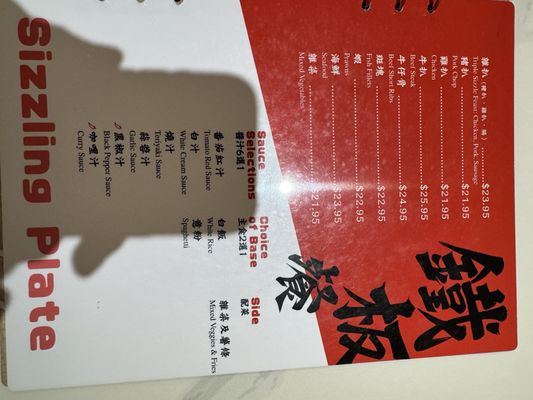 鐵板餐
Sizzling Plate
雜扒 (豬扒、雞扒、腸) $23.95
Triple Sizzle Feast: Chicken, Pork, Sausage
豬扒 $21.95
Pork Chop
雞扒 $21.95
Chicken
牛扒 $25.95
Beef Steak
牛仔骨 $24.95
Beef Short Ribs
斑塊 $22.95
Fish Fillets
蝦 $22.95
Prawns
海鮮 $23.95
Seafood
雜菜 $21.95
Mixed Vegetables
Sauce Selections
醬汁6選1
番茄紅汁
Tomato Red Sauce
白汁
White Cream Sauce
燒汁
Teriyaki Sauce
蒜蓉汁
Garlic Sauce
黑椒汁
Black Pepper Sauce
咖喱汁
Curry Sauce
Choice of Base
主食2選1
白飯
White Rice
意粉
Spaghetti
Side
配菜
雜菜及薯條
Mixed Veggies & Fries